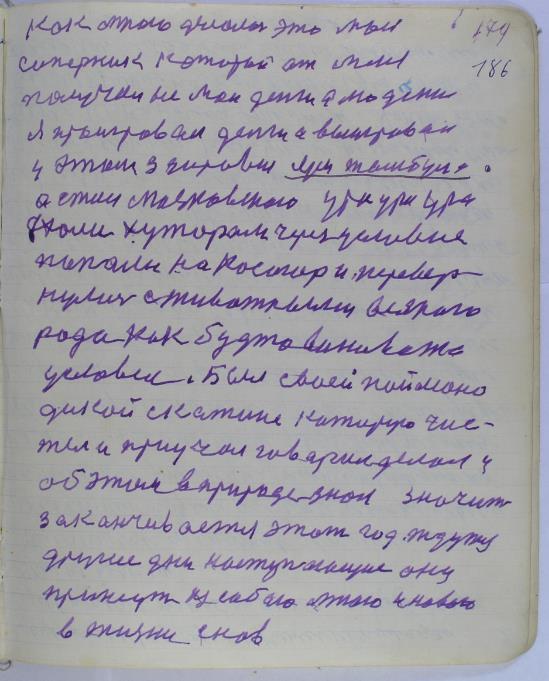 179
186
как много делов это мои
соперник который от меня
получил не мои денги а мо дени
Я проигровал денги а выигровал
у этом здоровия
а стих Маяковского ура ура ура
Коли хуторам через условие
попали на косогор и перевер-
нулис с животными всякого
рода как будто виновато
условия. Был своей поймано
дикой скатине которую чис-
тел и приучал говарил делал и
об этом в природе знал значит
заканчивается этот год жду
другие дни наступающие они
принесут из собою много новово
в жизни снов